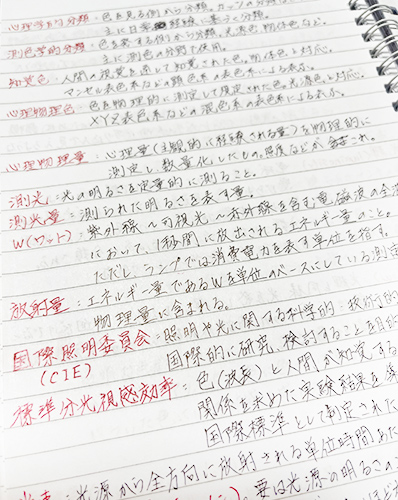 心理学的分類：色を見る側から分類。カッツの分類など
主に日常経験に基づく分類。
測色学的分類：色を表す側から分類。光源色 物体色など。
主に測色の分野で使用。
知覚色：人間の視覚を通して知覚された色。物体色と対応。
マンセル表色系などの顕色系の表色系による表示。
心理物理色：色を物理的に測定して規定された色。光源色と対応。
XYZ表色系などの混色系の表色系による表示。
心理物理量：心理量（主観的に経験される量）を物理的に
測定し数量化したもの。照度などが含まれ、
測光：光の明るさを定量的に測ること。
測光量：測られた明るさを表す量。
W（ワット）：紫外線〜可視光〜赤外線を含む電磁波の全波
において、1秒間に放出されるエネルギー量のこと。
ただし、ランプでは消費電力を表す単位を指す。
放射量：エネルギー量であるWを単位のベースにしている測定
物理量に含まれる。
国際照明委員会：照明や光に関する科学的・技術的
（CIE）国際的に研究、検討することを目的
標準分光視感効率：色（波長）と人間が知覚する
関係を求めた実験結果を
国際標準として制定された
光束：光源から全方向に放射される単位時間あた
要は光源の明るさの